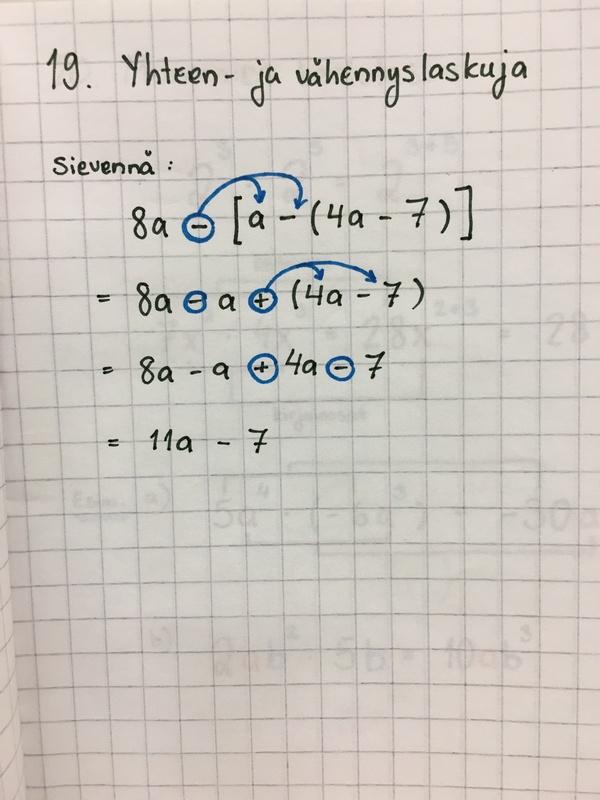 19. Yhteen- ja vähennyslaskuja
Sievennä:
8a - [a - (4a - 7)]
= 8a - a + (4a - 7)
= 8a - a + 4a - 7
= 11a - 7